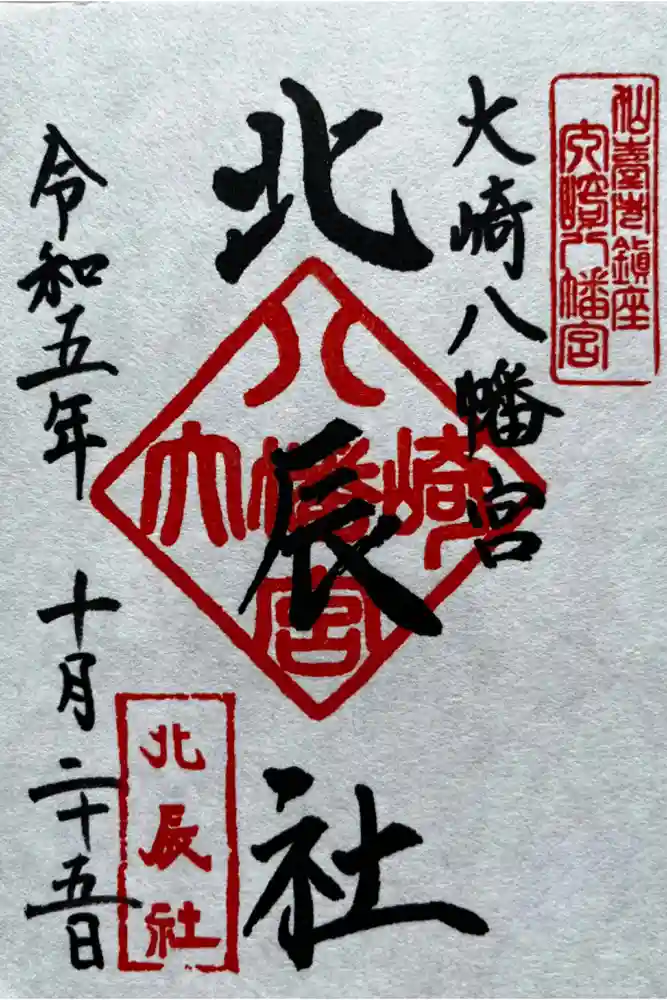 仙臺市鎮座
大崎八幡宮
大崎八幡宮
北辰社
八
大幡崎
宮
令和五年
十月二十五日
北辰社